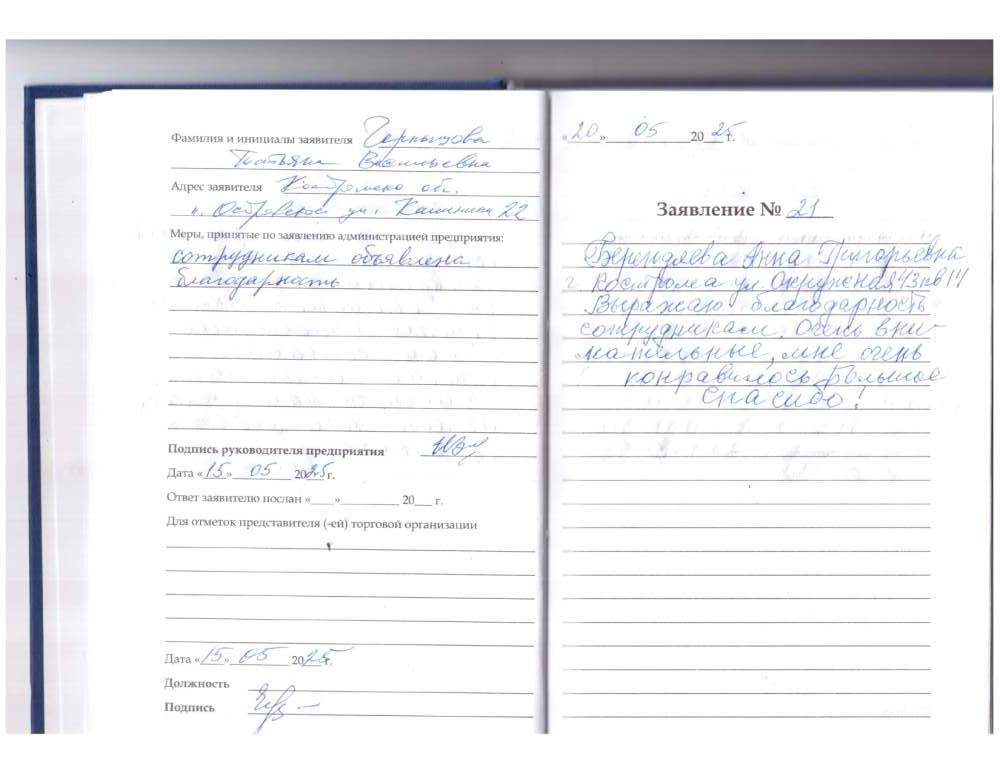 Фамилия и инициалы заявителя
Татьяна Васильевна
Адрес заявителя Костромско обл.
п. Островское ул. Калинина 22
Меры, принятые по заявлению администрацией предприятия:
сотрудникам объявлена
благодарность
Подпись руководителя предприятия
Дата «15» 05 2025г.
Ответ заявителю послан «___» ________ 20___ г.
Для отметок представителя (-ей) торговой организации
Дата «15» 05 2025г.
Должность
Подпись
«20» 05 2025г.
Заявление № 21
Берендяева Анна Григорьевна
г Кострома ул Окружная 43 кв 14
Выражаю благодарность
сотрудникам. Очень вни-
мательные, мне очень
понравилось Большое
спасибо!